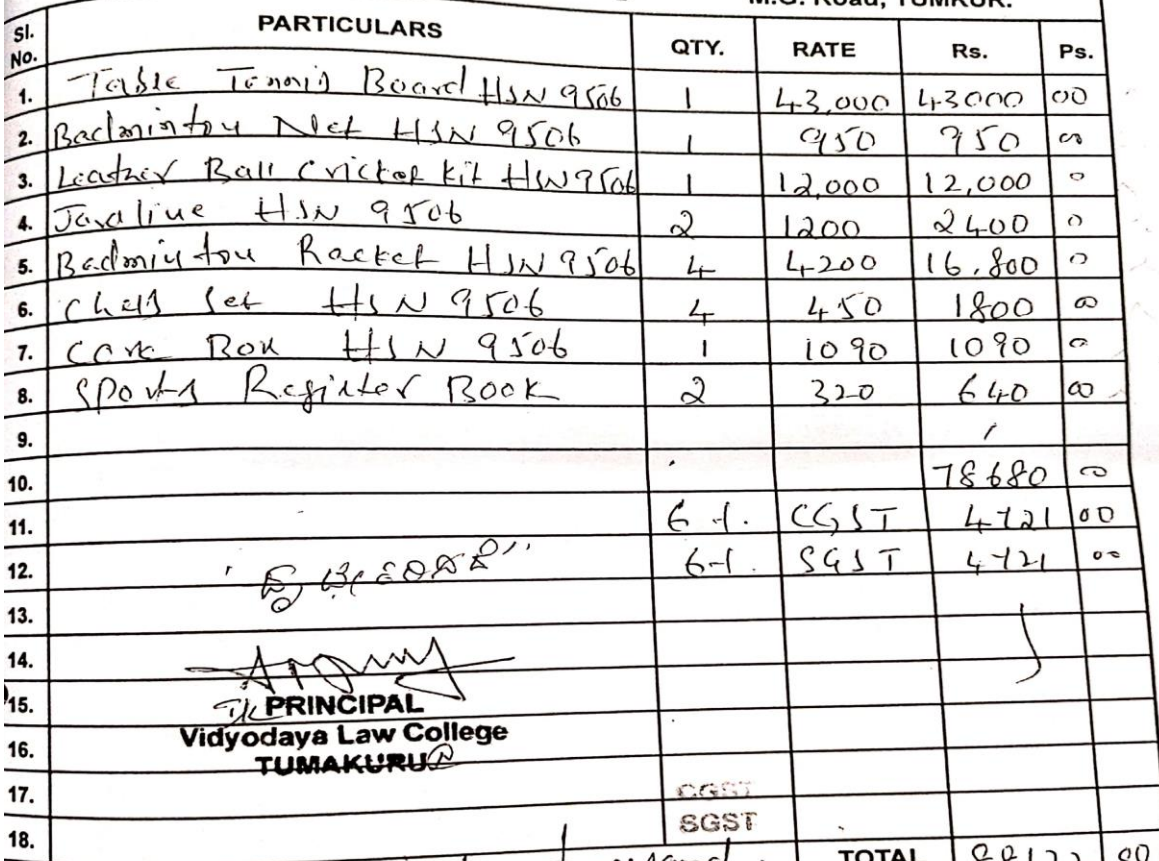 M.G. Road, TUMKUR.
Sl. No. PARTICULARS QTY. RATE Rs. Ps.
1. Table Tennis Board HSN 9506 1 43,000 43000 00
2. Badminton Net HSN 9506 1 950 950 00
3. Leather Ball Cricket Kit HSN 9506 1 12,000 12,000 0
4. Javaline HSN 9506 2 1200 2400 0
5. Badminton Racket HSN 9506 4 4200 16,800 0
6. Chess Set HSN 9506 4 450 1800 00
7. HSN 9506 1 1090 1090 0
8. Sports Register Book 2 320 640 00
9.
10. 78680 00
11. 6 %. CGST 4721 00
12. 6 %. SGST 4721 00
13.
14.
15. PRINCIPAL
Vidyodaya Law College
16. TUMAKURU
17. CGST
SGST
18.
TOTAL 88122 00